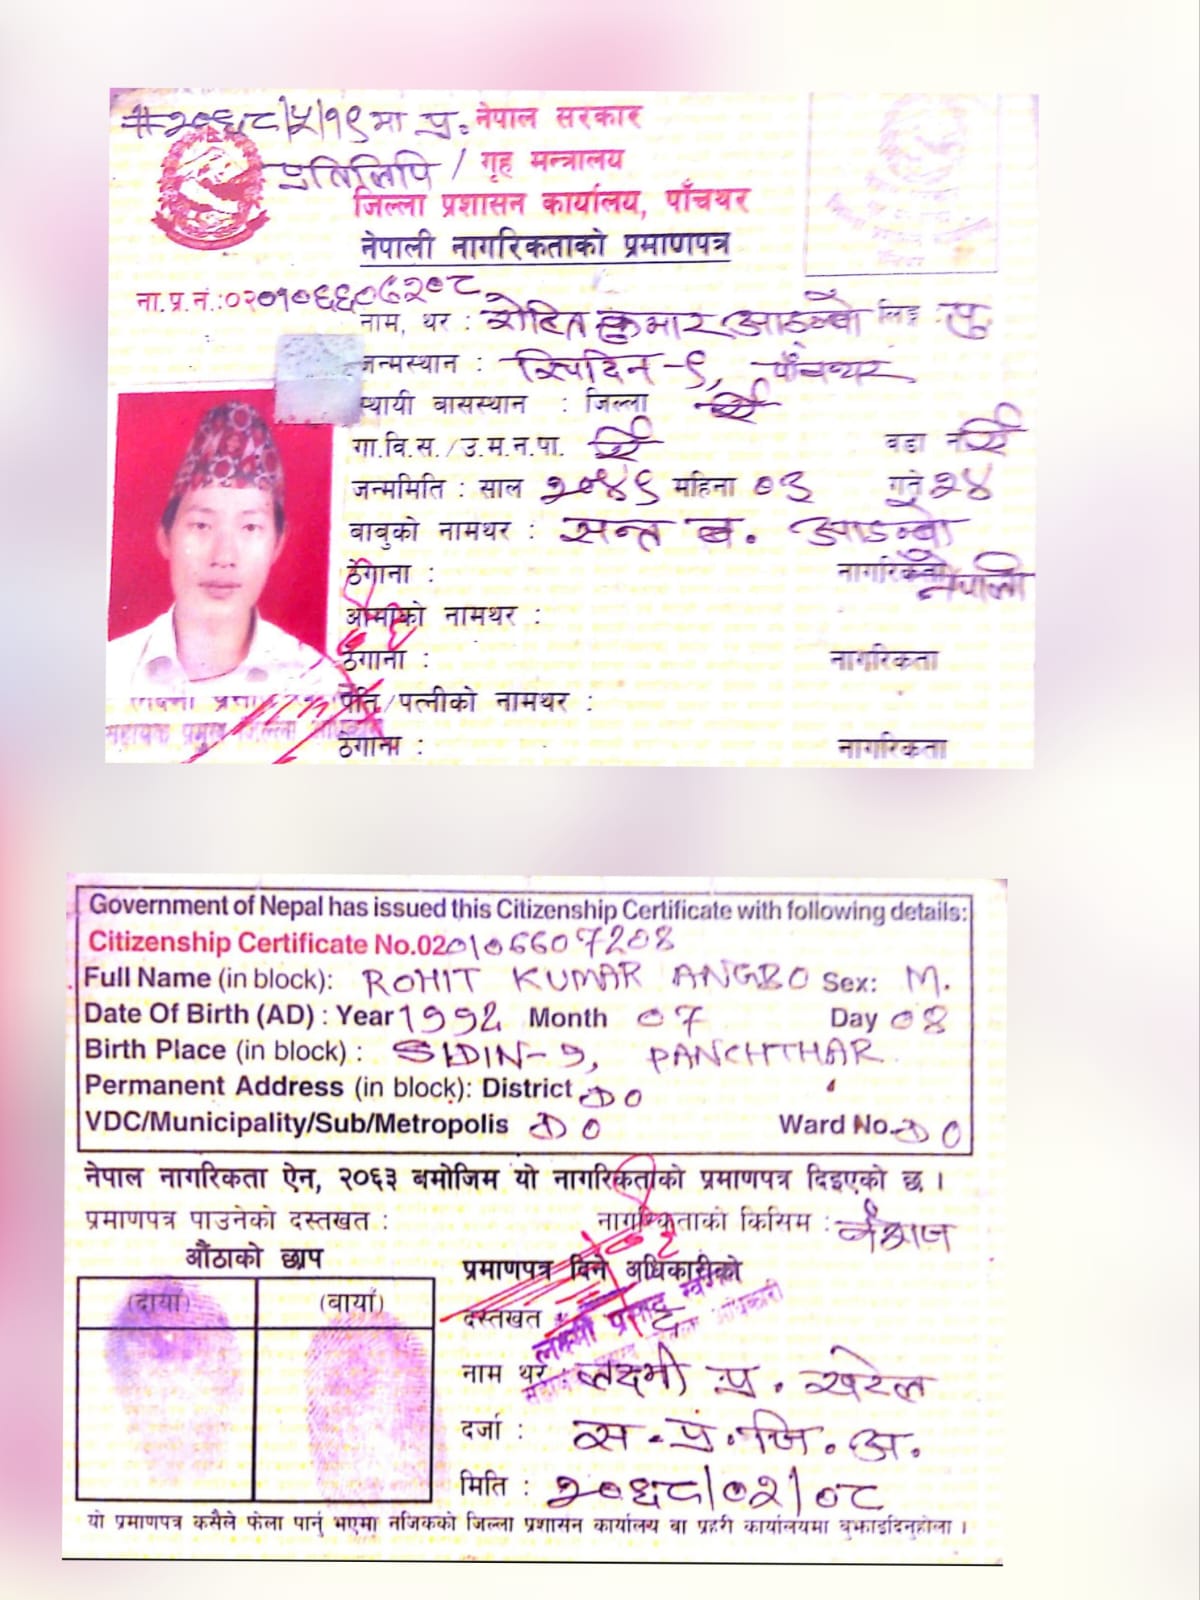 #२०६८|५|१९ मा प्र. नेपाल सरकार
प्रतिलिपि / गृह मन्त्रालय
जिल्ला प्रशासन कार्यालय, पाँचथर
नेपाली नागरिकताको प्रमाणपत्र
ना.प्र.नं.:०२०१०६६०७२०८
नाम, थर : रोहित कुमार आङबो लिङ्ग : पु
जन्मस्थान : सिदिन-९, पाँचथर
स्थायी बासस्थान : जिल्ला ऐ ऐ
गा.वि.स./उ.म.न.पा. ऐ ऐ वडा नं ऐ ऐ
जन्ममिति : साल २०४९ महिना ०३ गते २४
बाबुको नामथर : सन्त ब. आङबो
ठेगाना : नागरिकता नेपाली
आमाको नामथर :
ठेगाना : नागरिकता
पति/पत्नीको नामथर :
सहायक प्रमुख जिल्ला
ठेगाना : नागरिकता
Government of Nepal has issued this Citizenship Certificate with following details:
Citizenship Certificate No.020106607208
Full Name (in block): ROHIT KUMAR ANGBO Sex: M.
Date Of Birth (AD) : Year 1992 Month 07 Day 08
Birth Place (in block) : SIDIN-9, PANCHTHAR
Permanent Address (in block): District DO
VDC/Municipality/Sub/Metropolis DO Ward No. DO
नेपाल नागरिकता ऐन, २०६३ बमोजिम यो नागरिकताको प्रमाणपत्र दिइएको छ ।
प्रमाणपत्र पाउनेको दस्तखत : नागरिकताको किसिम : वंशज
औंठाको छाप
(दायाँ) (बायाँ)
प्रमाणपत्र दिने अधिकारीको
दस्तखत
लक्ष्मी प्रसाद
नाम थर : लक्ष्मी प्र. खरेल
दर्जा : स.प्र.जि.अ.
मिति : २०६८|०२|०८
यो प्रमाणपत्र कसैले फेला पार्नु भएमा नजिकको जिल्ला प्रशासन कार्यालय वा प्रहरी कार्यालयमा बुझाईदिनुहोला ।